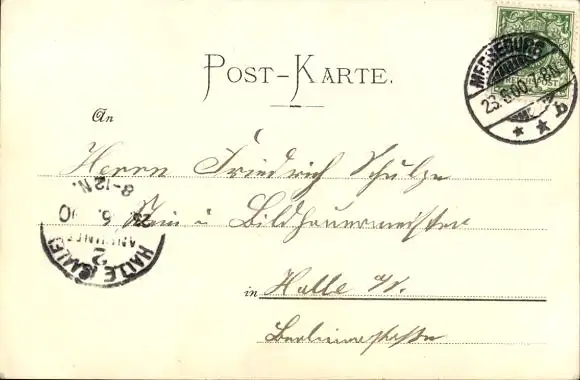 POST-KARTE.
MERSEBURG
23.6.00.7-8N.
* * b
An
Herrn Friedrich Schulze
Stein u Bildhauermeister
8-12 N.
23. 6. 00
ANKUNFT
2
HALLE (SAALE)
in Halle a/S.
Berlinerstraße